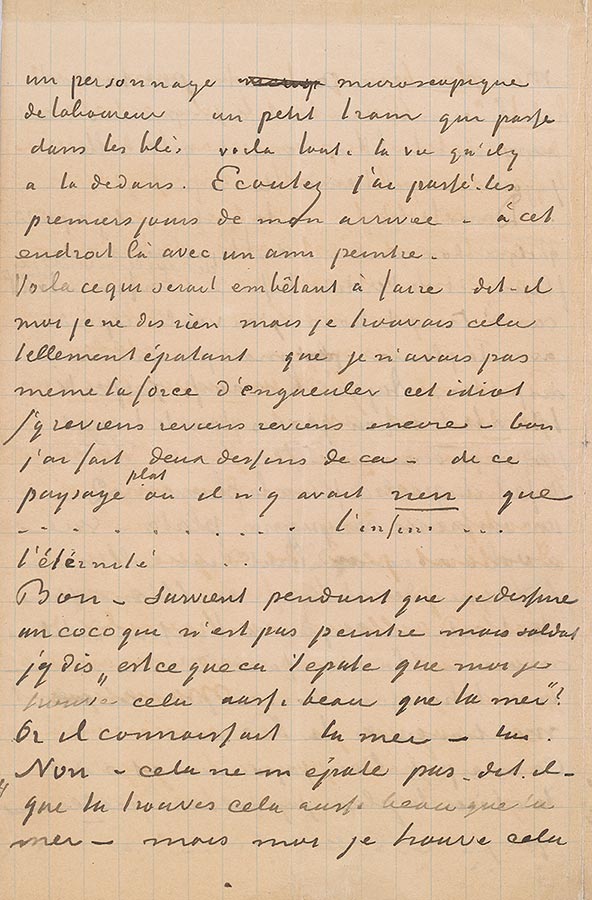 un personnage microscopique
de laboureur un petit train qui passe
dans les blés voila toute la vie qu'il y
a la dedans. Ecoutez j'ai passé – les
premiers jours de mon arrivee – à cet
endroit là avec un ami peintre.
Voila ce qui serait embêtant à faire dit-il
moi je ne dis rien mais je trouvais cela
tellement épatant que je n'avais pas
meme la force d'engueuler cet idiot
j'y reviens reviens reviens encore – bon
j'ai fait deux dessins de ca – de ce
paysage plat où il n'y avait rien que
. . . . . . . . . . l'infini ...
l'éternité . .
Bon – survient pendant que je dessine
un coco qui n'est pas peintre mais soldat
j'y dis „est ce que ca t'epate que moi je
trouve cela aussi beau que la mer"?
Or il connaissait la mer – lui.
Non – cela ne m'épate pas – dit-il –
que tu trouves cela aussi beau que la
mer – mais moi je trouve cela